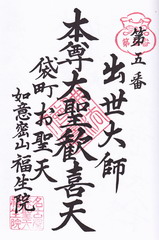 第五番
出世大師
本尊大聖歓喜天
袋町お聖天
如意密山福生院